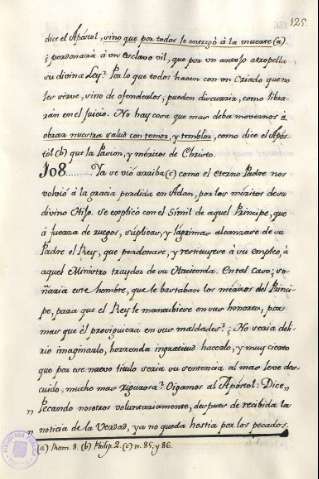 125
dice el Apóstol, sino que por todos le entregó à la muerte (a)
¿perdonará à un esclavo vil, que por un antojo atropella
su divina Ley? Por lo que todos hacen con un Criado que no
les sirve, sino de ofenderles, pueden discurrir, como libra-
rán en el Juicio. No hay cosa que mas deba movernos à
obrar nuestra salud con temor, y temblor, como dice el Após-
tol (b) que la Pasion, y méritos de Christo.
108. Ya se vió arriba (c) como el eterno Padre nos
volvió à la gracia perdida en Adan, por los méritos de su
divino Hijo. Se explicó con el Simil de aquel Principe, que
à fuerza de ruegos, súplicas, y lágrimas alcanzase de su
Padre el Rey, que perdonase, y restituyese à su empleo, à
aquel Ministro traydor de su Hacienda. En tal caso; so-
ñaria este hombre, que le bastaban los méritos del Princi-
pe, para que el Rey le mantubiese en sus honores, por
mas que él prosiguiera en sus maldades? ¿No seria deli-
rio imaginarlo, horrenda ingratitud hacerlo, y muy cierto
que por ese nuevo titulo seria su sentencia al mas leve des-
cuido, mucho mas rigurosa? Oigamos al Apóstol: Dice,
" Pecando nosotros voluntariamente, despues de recibida la
" noticia de la Verdad, ya no queda hostia por los pecados.
(a) Rom. 8. (b) Philip. 2. (c) n. 85. y 86.